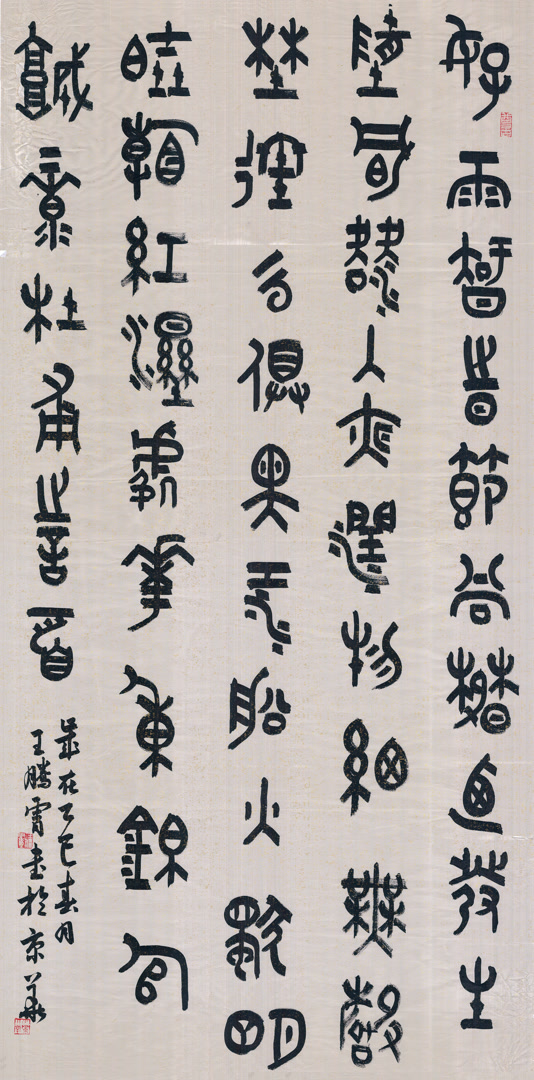 好雨知時節當春乃發生
隨風潛入夜潤物細無聲
野徑雲俱黑江船火獨明
曉看紅濕處花重錦官
城 杜甫詩一首
歲在乙巳春月
王騰霄書於京華